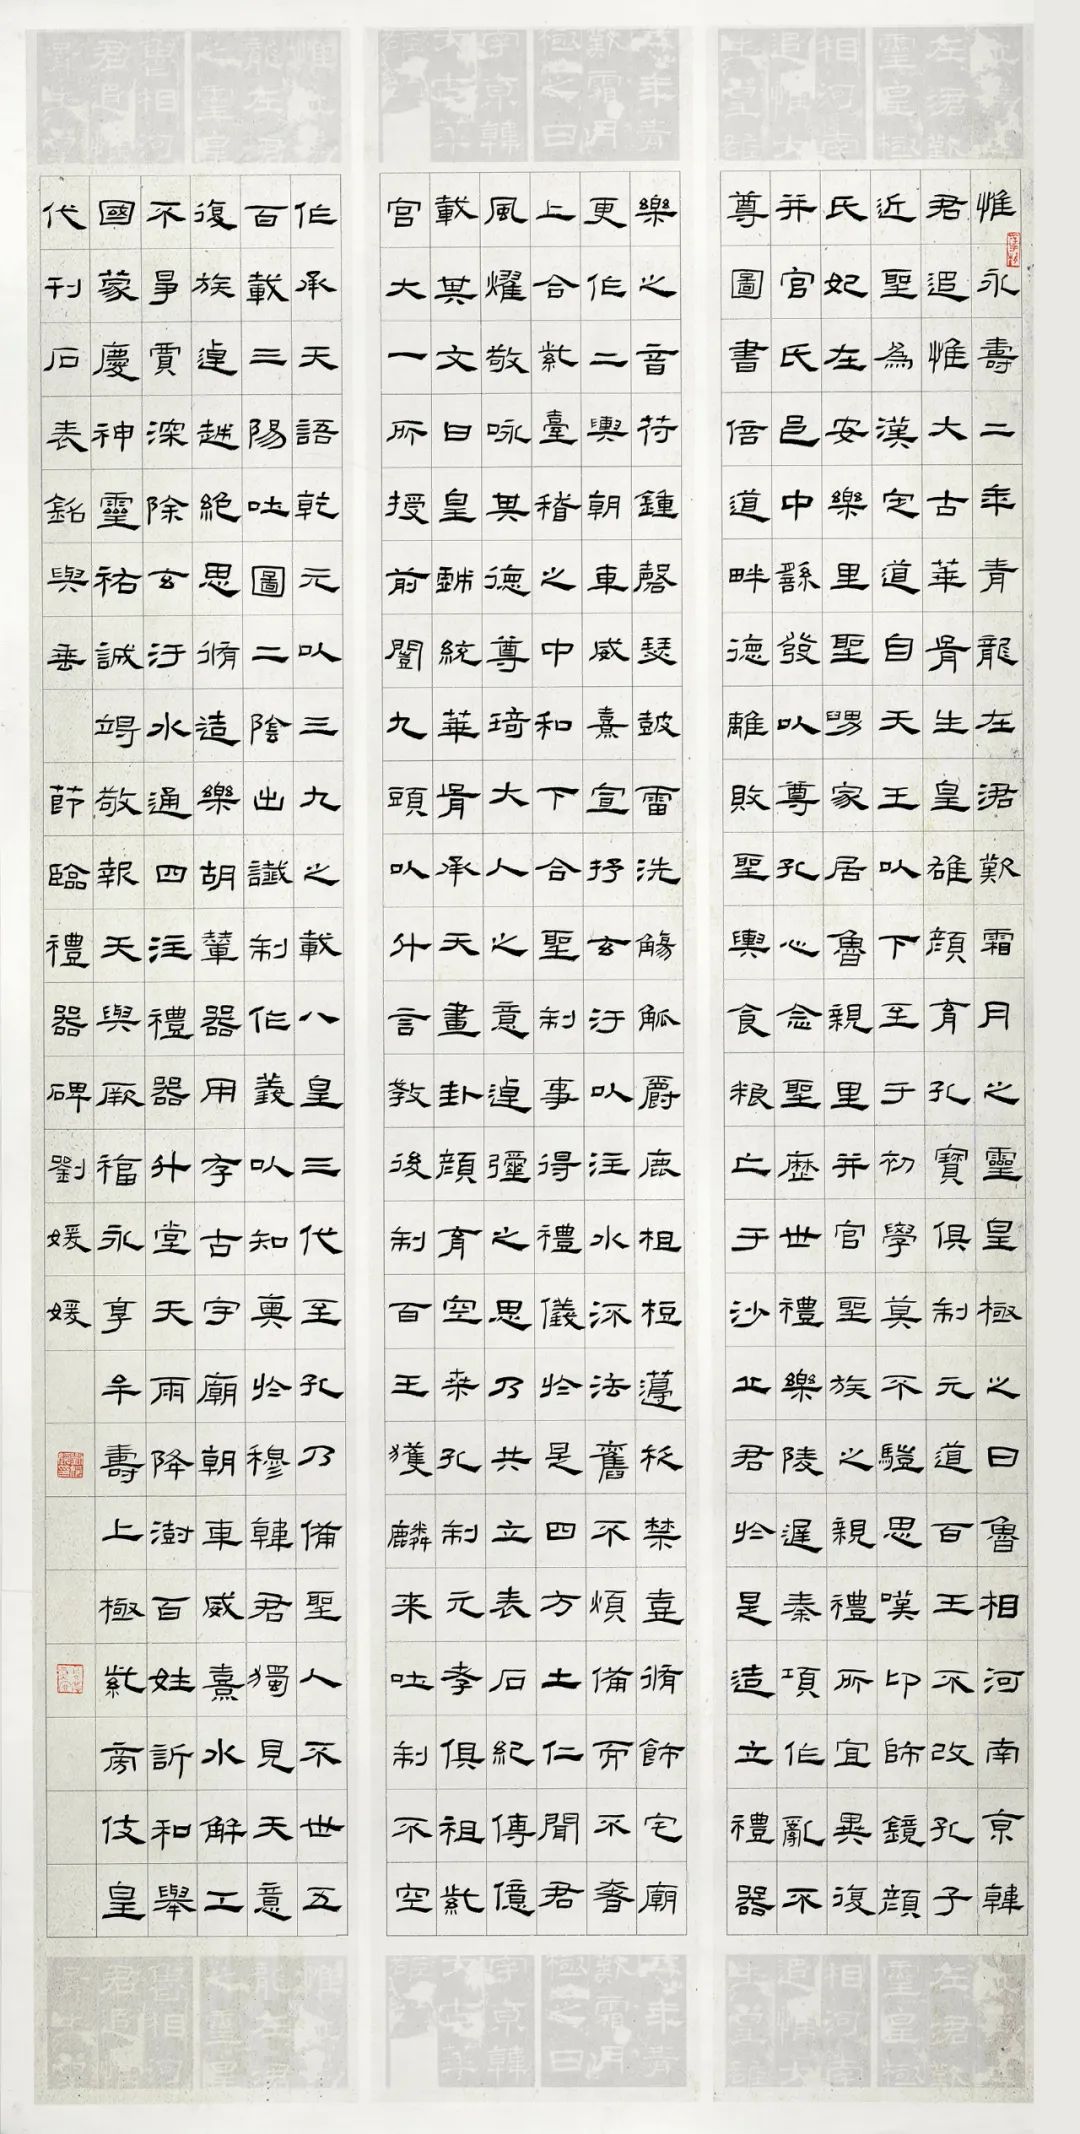 惟永壽二年青龍在涒歎霜月之靈皇極之日魯相河南京韓
君追惟大古華胥生皇雄顏育孔寶俱制元道百王不改孔子
近聖為漢定道自天王以下至于初學莫不驥思嘆卬師鏡顏
氏妃在安樂里聖舅家居魯親里并官聖族之親禮所宜異復
并官氏邑中繇發以尊孔心念聖歷世禮樂陵遲秦項作亂不
尊圖書倍道畔德離敗聖輿食粮亡于沙丘君於是造立禮器
樂之音符鍾磬瑟鼓雷洗觴觚爵鹿柤梪籩柉禁壺脩飾宅廟
更作二輿朝車威熹宣抒玄汙以注水流法舊不煩備而不奢
上合紫臺稽之中和下合聖制事得禮儀於是四方土仁聞君
風燿敬咏其德尊琦大人之意逴彌之思乃共立表石紀傳億
載其文曰皇戲統華胥承天畫卦顏育空桑孔制元孝俱祖紫
宮大一所授前闓九頭以什言教後制百王獲麟來吐制不空
作承天語乾元以三九之載八皇三代至孔乃備聖人不世五
百載三陽吐圖二陰出讖制作義以知奧於穆韓君獨見天意
復族逴越絕思脩造樂胡輦器用存古宇廟朝車威熹水解工
不爭賈深除玄汙水通四注禮器升堂天雨降澍百姓訢和舉
國蒙慶神靈祐誠竭敬報天與厥福永享牟壽上極紫旁伎皇
代刊石表銘與垂 節臨禮器碑劉媛媛